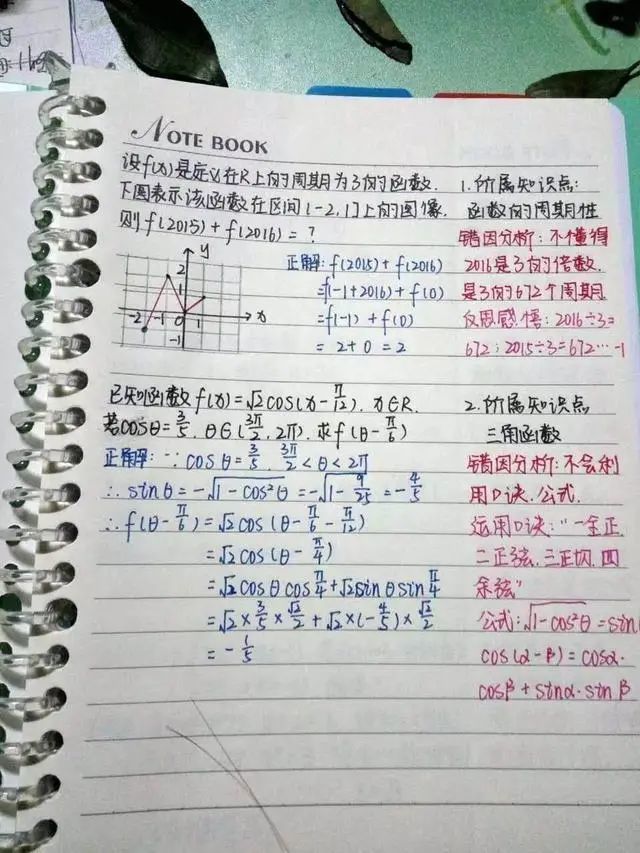 NOTE BOOK
设f(x)是定义在R上的周期为3的函数.
下图表示该函数在区间[-2,1]上的图像.
则f(2015)+f(2016)=?
y
2
1
-2 -1 0 1 x
-1
正解:f(2015)+f(2016)
=f(-1+2016)+f(0)
=f(-1)+f(0)
=2+0=2
1.所属知识点:
函数的周期性
错因分析:不懂得
2016是3的倍数.
是3的672个周期.
反思感悟:2016÷3=
672;2015÷3=672…-1
已知函数f(x)=√2cos(x-π/12).x∈R.
若cosθ=3/5.θ∈(3π/2,2π).求f(θ-π/6)
正解:∵cosθ=3/5.3π/2<θ<2π
∴sinθ=-√1-cos²θ=-√1-9/25=-4/5
∴f(θ-π/6)=√2cos(θ-π/6-π/12)
=√2cos(θ-π/4)
=√2cosθcosπ/4+√2sinθsinπ/4
=√2×3/5×√2/2+√2×(-4/5)×√2/2
=-1/5
2.所属知识点
三角函数
错因分析:不会利
用口诀.公式.
运用口诀:"一全正.
二正弦.三正切.四
余弦"
公式:√1-cos²θ=sin
cos(α-β)=cosα·
cosβ+sinα·sinβ